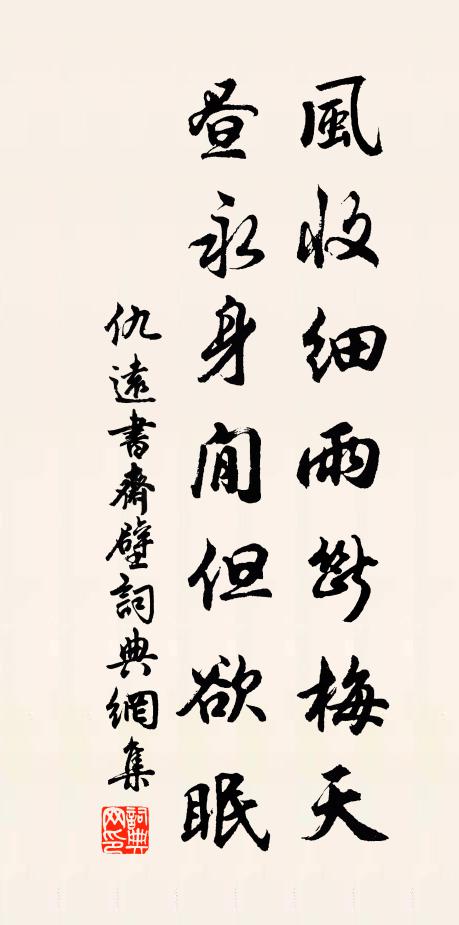 風收細雨斷梅天
晝永身閒但欲眠
仇遠書齋壁詞典網集
詞典網印